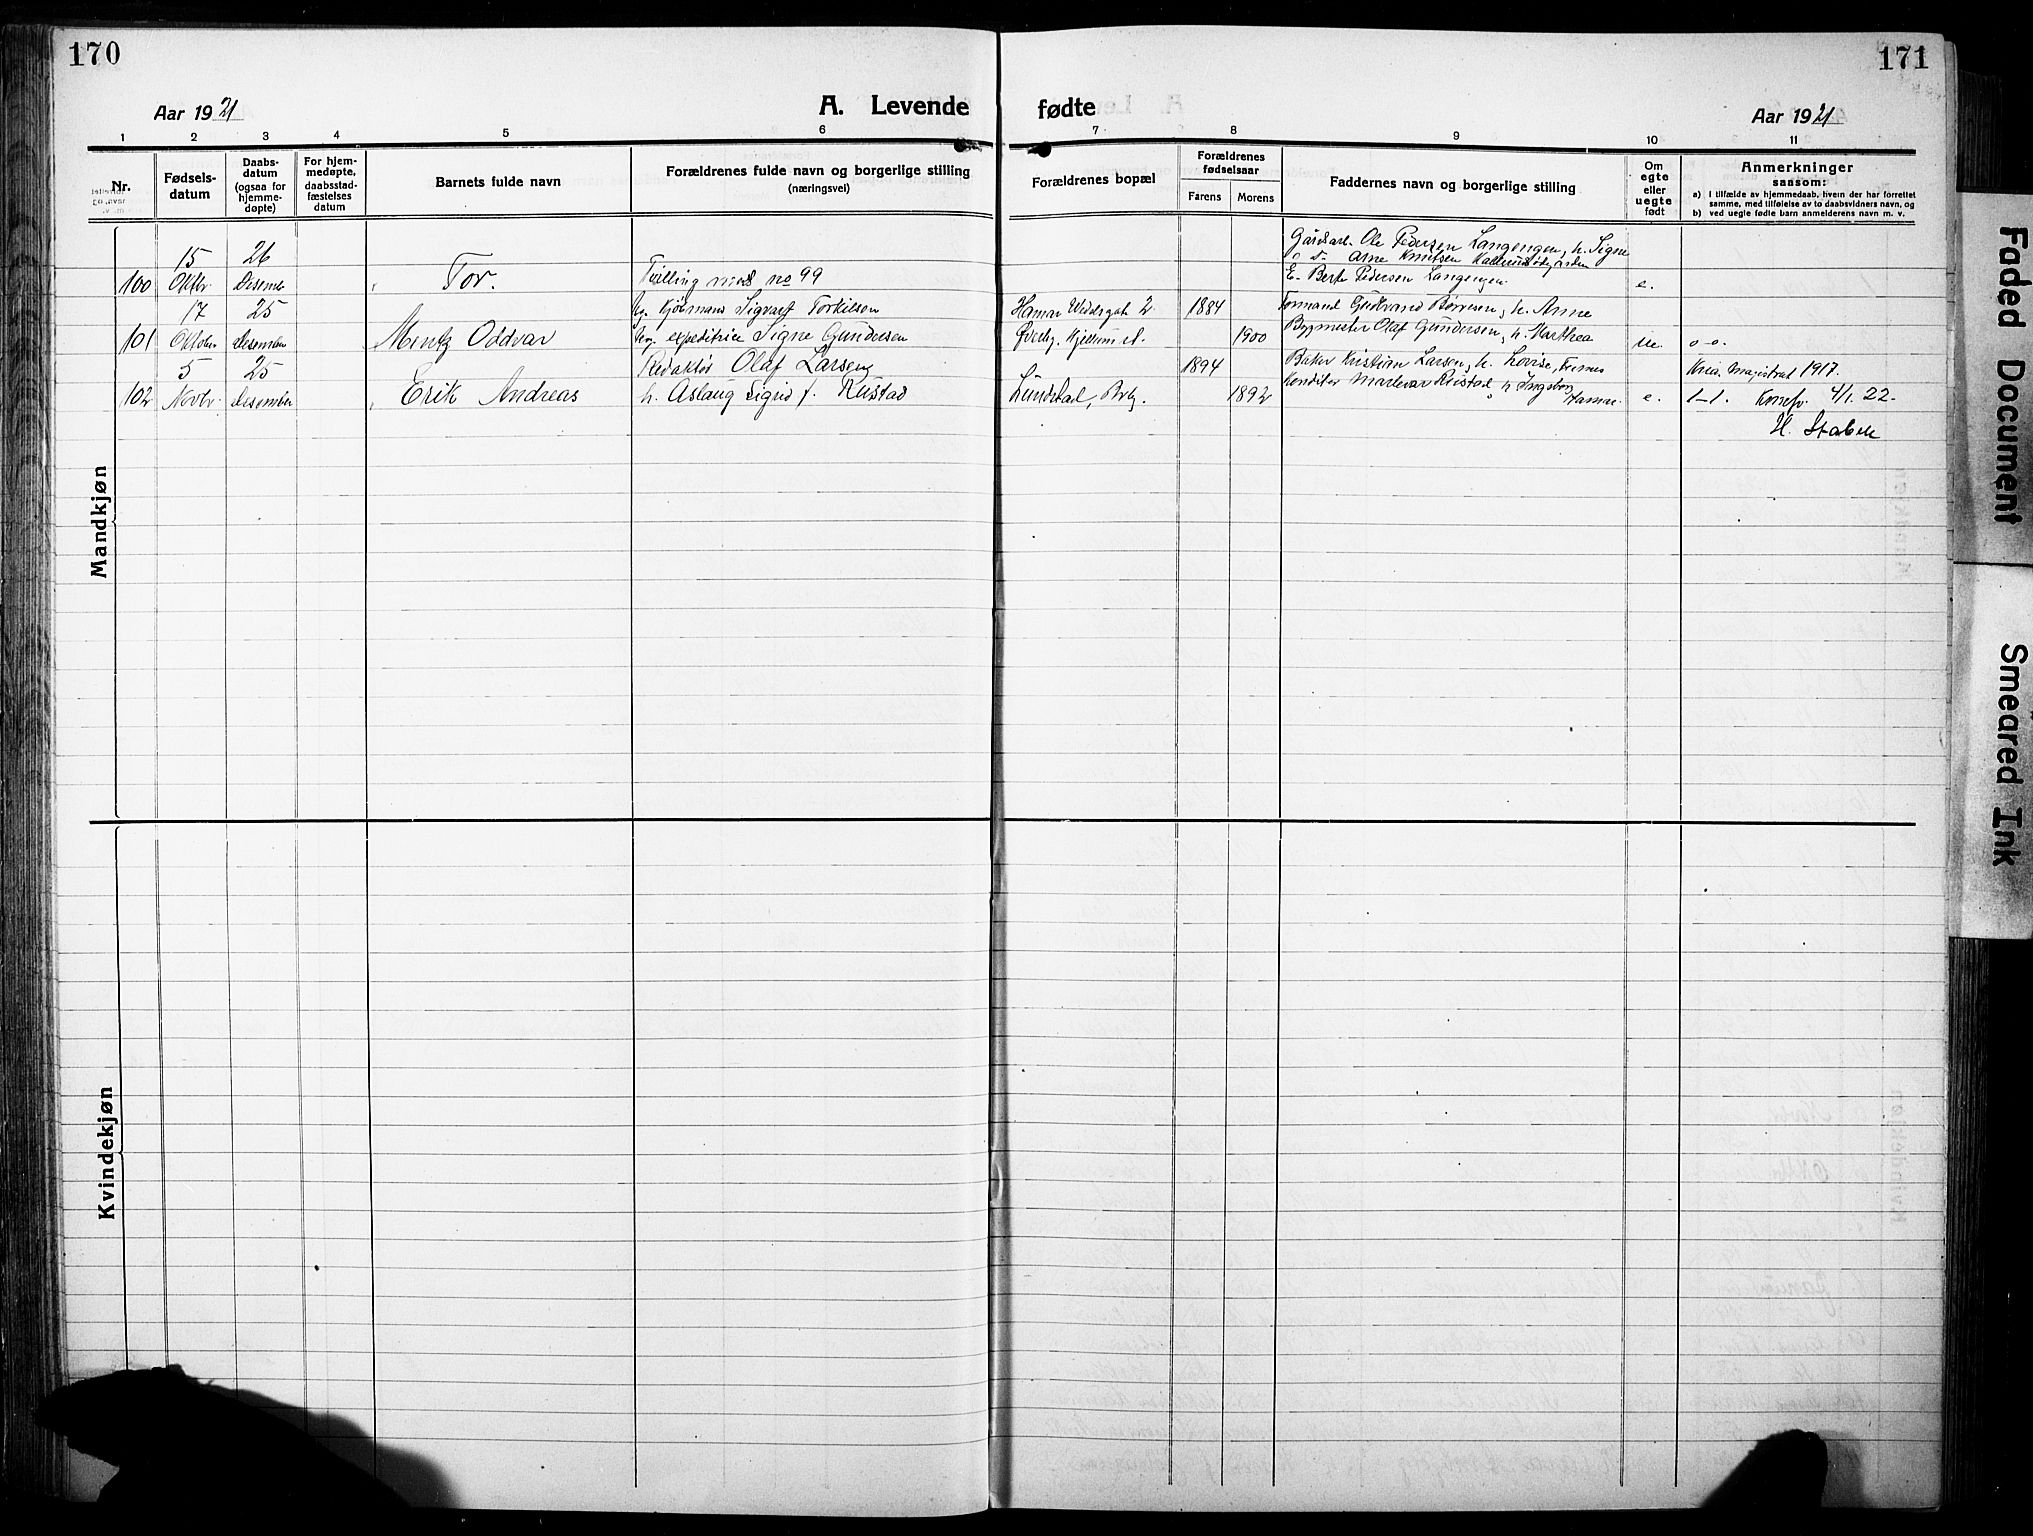 170
Aar 1921
A. Levende
1 2 3 4 5 6
Nr.
Fødsels-
datum
Daabs-
datum
(ogsaa for
hjemme-
døpte)
For hjem-
medøpte,
daabsstad-
fæstelses
datum
Barnets fulde navn
Forældrenes fulde navn og borgerlige stilling
(næringsvei)
15 26
100 Oktbr. Desember Tor. Tvilling med no 99
17 25 Ug. Kjøbmand Sigvart Torkilsen
101 Oktober Desember Mentz Oddvar Ug. expeditrice Signe Gundersen
5 25 Redaktør Olaf Larsen
102 Novbr. Desember Erik Andreas h. Aslaug Sigrid f. Rustad
Mandkjøn
Kvindekjøn
171
fødte
Aar 1921
7 8 9 10 11
Forældrenes bopæl
Forældrenes
fødselsaar
Farens Morens
Faddernes navn og borgerlige stilling
Om
egte
eller
uegte
født
Anmerkninger
saasom:
a) I tilfælde av hjemmedaab, hvem der har forrettet
samme, med tilføielse av to daabsvidners navn, og
b) ved uegte fødte barn anmelderens navn m. v.
Gaardarb. Ole Pedersen Langengen, h. Signe
Arne Knutsen
E. Berte Pedersen Langengen. e.
Hamar 2 1884 Formand Gudbrand Børresen, h. Anne
Hjellum st. 1900 Bygmester Olaf Gundersen, h. Marthea ue. o-o.
1894 Baker Kristian Larsen, h. Lovise, Kria. magistrat 1917.
Lundstad, 1892 Konditor Rustad h Ingeborg Hamar. e. 1-1. 4/1. 22.
H. Stabell
Faded Document
Smeared Ink